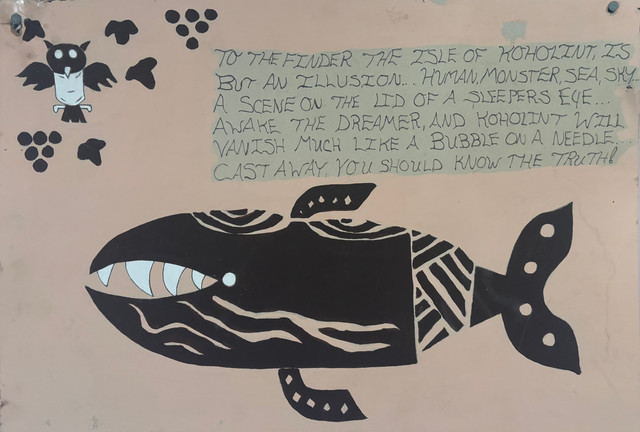 TO THE FINDER THE ISLE OF KOHOLINT, IS
BUT AN ILLUSION... HUMAN, MONSTER, SEA, SKY
A SCENE ON THE LID OF A SLEEPERS EYE...
AWAKE THE DREAMER, AND KOHOLINT WILL
VANISH MUCH LIKE A BUBBLE ON A NEEDLE...
CAST AWAY, YOU SHOULD KNOW THE TRUTH!